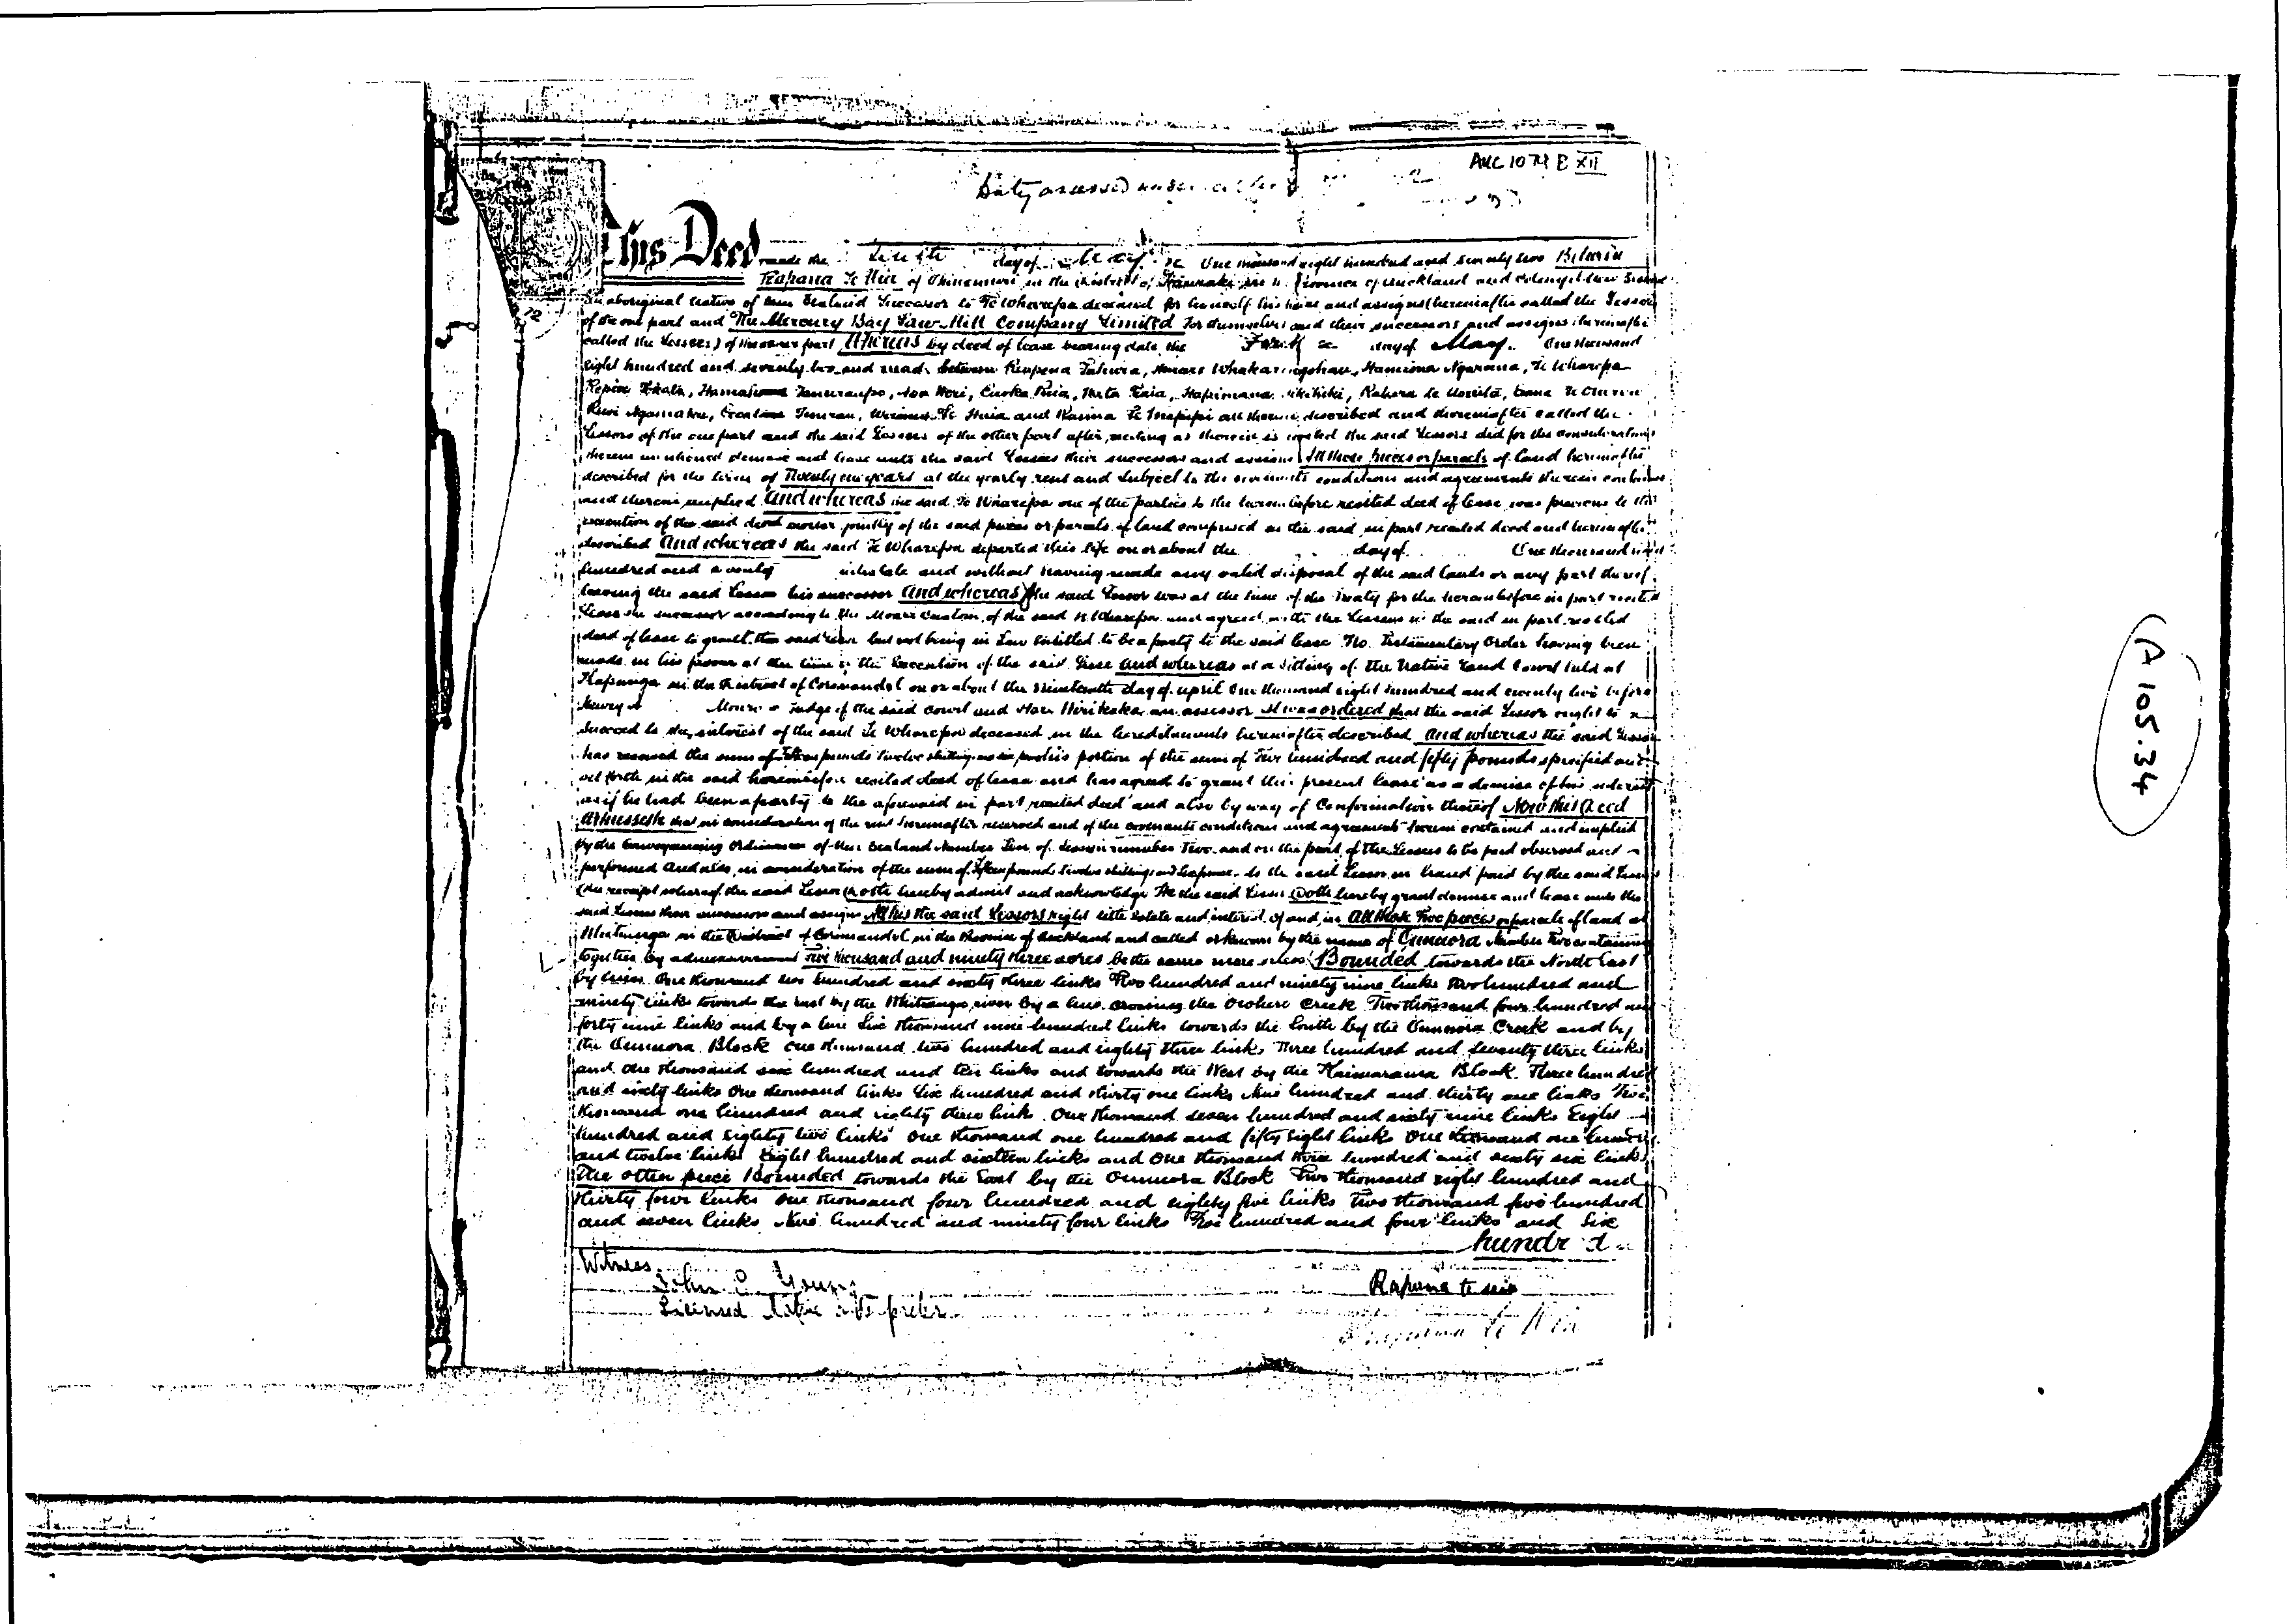 AUC 1074 E XII
Duty assessed
This Deed made the Tenth day of May One thousand eight hundred and seventy two Between
Rapana Te Hie of Ohinemuri in the District of Hauraki in the Province of Auckland and Colony of New Zealand
an aboriginal native of New Zealand Successor to Te Wharepa deceased for himself his heirs and assigns (hereinafter called the Lessor)
of the one part and The Mercury Bay Saw-Mill Company Limited for themselves and their successors and assigns (hereinafter
called the Lessees) of the other part Whereas by deed of lease bearing date the day of May One thousand
eight hundred and seventy two and made between Whakarongohau, Hamiona Ngarama, Te Wharepa
and Te described and thereinafter called the
Lessors of the one part and the said Lessees of the other part after reciting as therein is recited the said Lessors did for the considerations
therein mentioned demise and lease unto the said Lessees their successors and assigns All those pieces or parcels of land hereinafter
described for the term of Twenty one years at the yearly rent and subject to the covenants conditions and agreements therein contained
and therein implied And whereas the said Te Wharepa one of the parties to the hereinbefore recited deed of lease was previous to the
execution of the said deed owner jointly of the said pieces or parcels of land comprised in the said in part recited deed and hereinafter
described And whereas the said Te Wharepa departed this life on or about the day of One thousand eight
hundred and seventy intestate and without having made any valid disposal of the said lands or any part thereof
leaving the said Lessor his successor And whereas the said Lessor was at the time of the Treaty for the hereinbefore in part recited
lease the successor according to the Maori Custom of the said Te Wharepa and agreed with the Lessees in the said in part recited
deed of lease to grant the said lease but not being in Law entitled to be a party to the said lease No Testamentary Order having been
made in his favour at the time of the Execution of the said Lease And whereas at a sitting of the Native Land Court held at
Kapanga in the District of Coromandel on or about the nineteenth day of April One thousand eight hundred and seventy two before
Henry Monro a Judge of the said Court and an assessor It was ordered that the said Lessor ought to
succeed to the interest of the said Te Wharepa deceased in the hereditaments hereinafter described And whereas the said Lessor
has received the sum of Fifteen pounds twelve shillings and six pence his portion of the sum of Two hundred and fifty pounds specified and
set forth in the said hereinbefore recited deed of lease and has agreed to grant this present lease as a demise of his interest
as if he had been a party to the aforesaid in part recited deed and also by way of Confirmation thereof Now this Deed
Witnesseth that in consideration of the rent hereinafter reserved and of the covenants conditions and agreements herein contained and implied
by the Conveyancing Ordinance of New Zealand Number Ten of Session number Two and on the part of the Lessees to be paid observed and
performed And also in consideration of the sum of Fifteen pounds twelve shillings and six pence to the said Lessor in hand paid by the said Lessees
(the receipt whereof the said Lessor doth hereby admit and acknowledge) He the said Lessor Doth hereby grant demise and lease unto the
said Lessees their successors and assigns All his the said Lessors right title estate and interest of and in All those Two pieces or parcels of land at
Whitianga in the District of Coromandel in the Province of Auckland and called or known by the name of Ounuora Number Two containing
together by admeasurement Five thousand and ninety three acres be the same more or less Bounded towards the North East
by lines One thousand two hundred and sixty three links Two hundred and ninety nine links Two hundred and
ninety links towards the East by the Whitianga river by a line crossing the Creek Two thousand four hundred and
forty nine links and by a line Six thousand nine hundred links towards the South by the Ounuora Creek and by
the Ounuora Block one thousand two hundred and eighty three links Three hundred and seventy three links
and One thousand six hundred and ten links and towards the West by the Kaimarama Block Three hundred
and sixty links One thousand links Six hundred and thirty one links Nine hundred and thirty one links Two
thousand one hundred and eighty three links One thousand seven hundred and sixty nine links Eight
hundred and eighty two links One thousand one hundred and fifty eight links One thousand one hundred
and twelve links Eight hundred and sixteen links and One thousand three hundred and sixty six links
The other piece Bounded towards the East by the Ounuora Block Two thousand eight hundred and
thirty four links One thousand four hundred and eighty five links Two thousand two hundred
and seven links Nine hundred and ninety four links Two hundred and four links and Six
hundred
Witness
John C. Young
Licensed Native Interpreter
Rapana te
(A 105.34